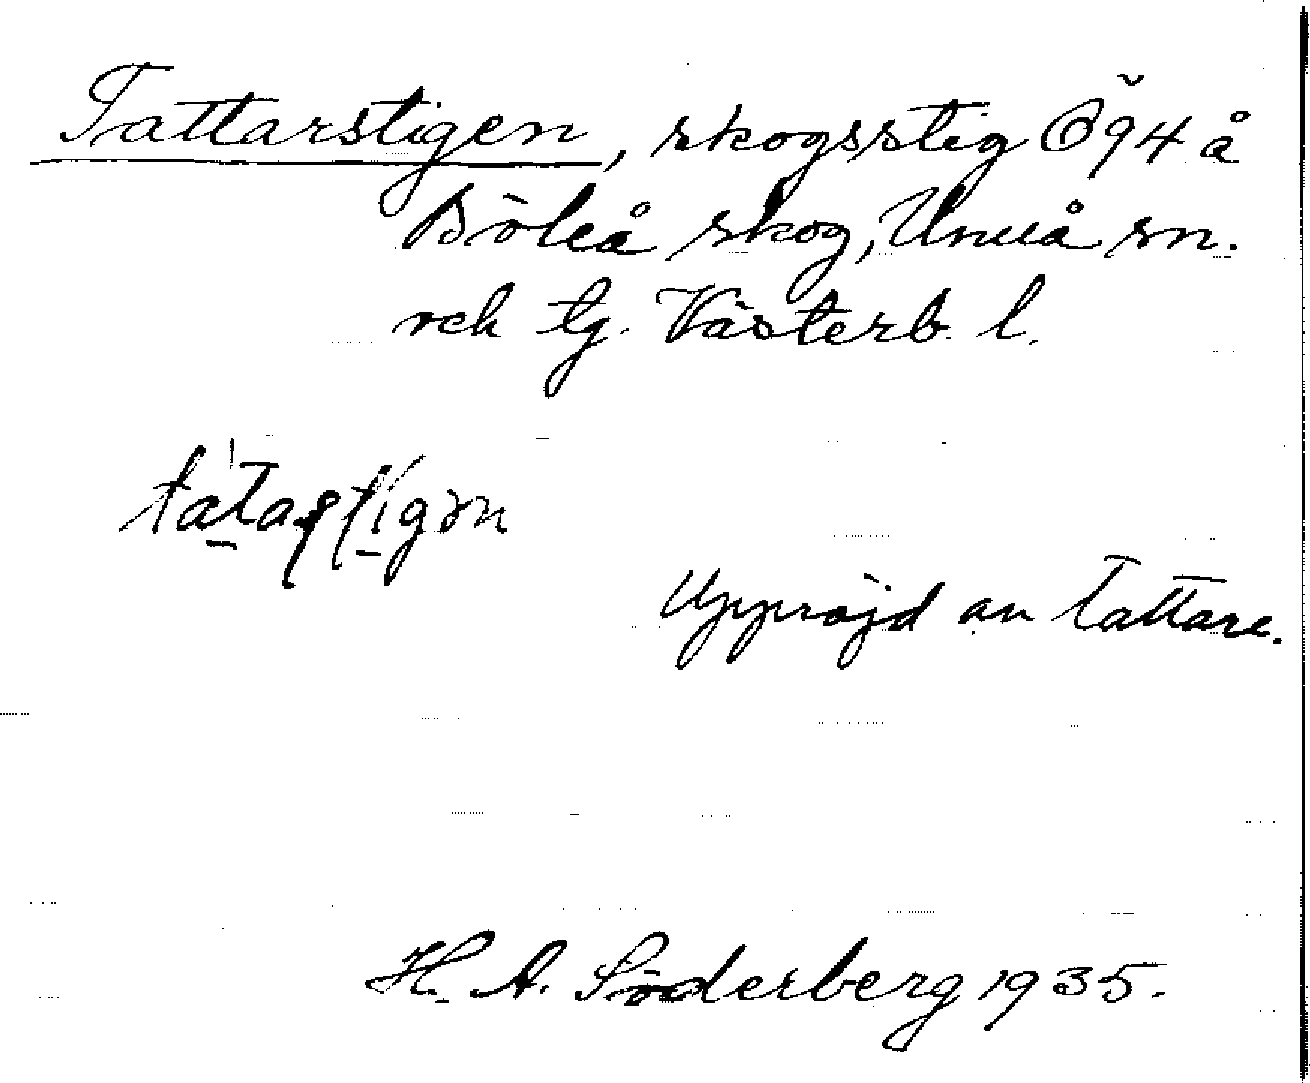 Tattarstigen, skogsstig Ö94 å
Böleå skog, Umeå sn.
och tg. Västerb. l.
Uppröjd av tattare.
H. A. Söderberg 1935.